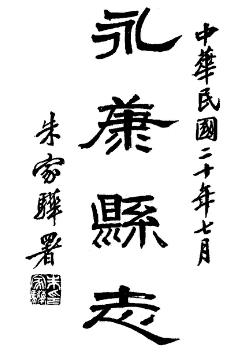 中華民國二十年七月
永康縣志
朱家驊署